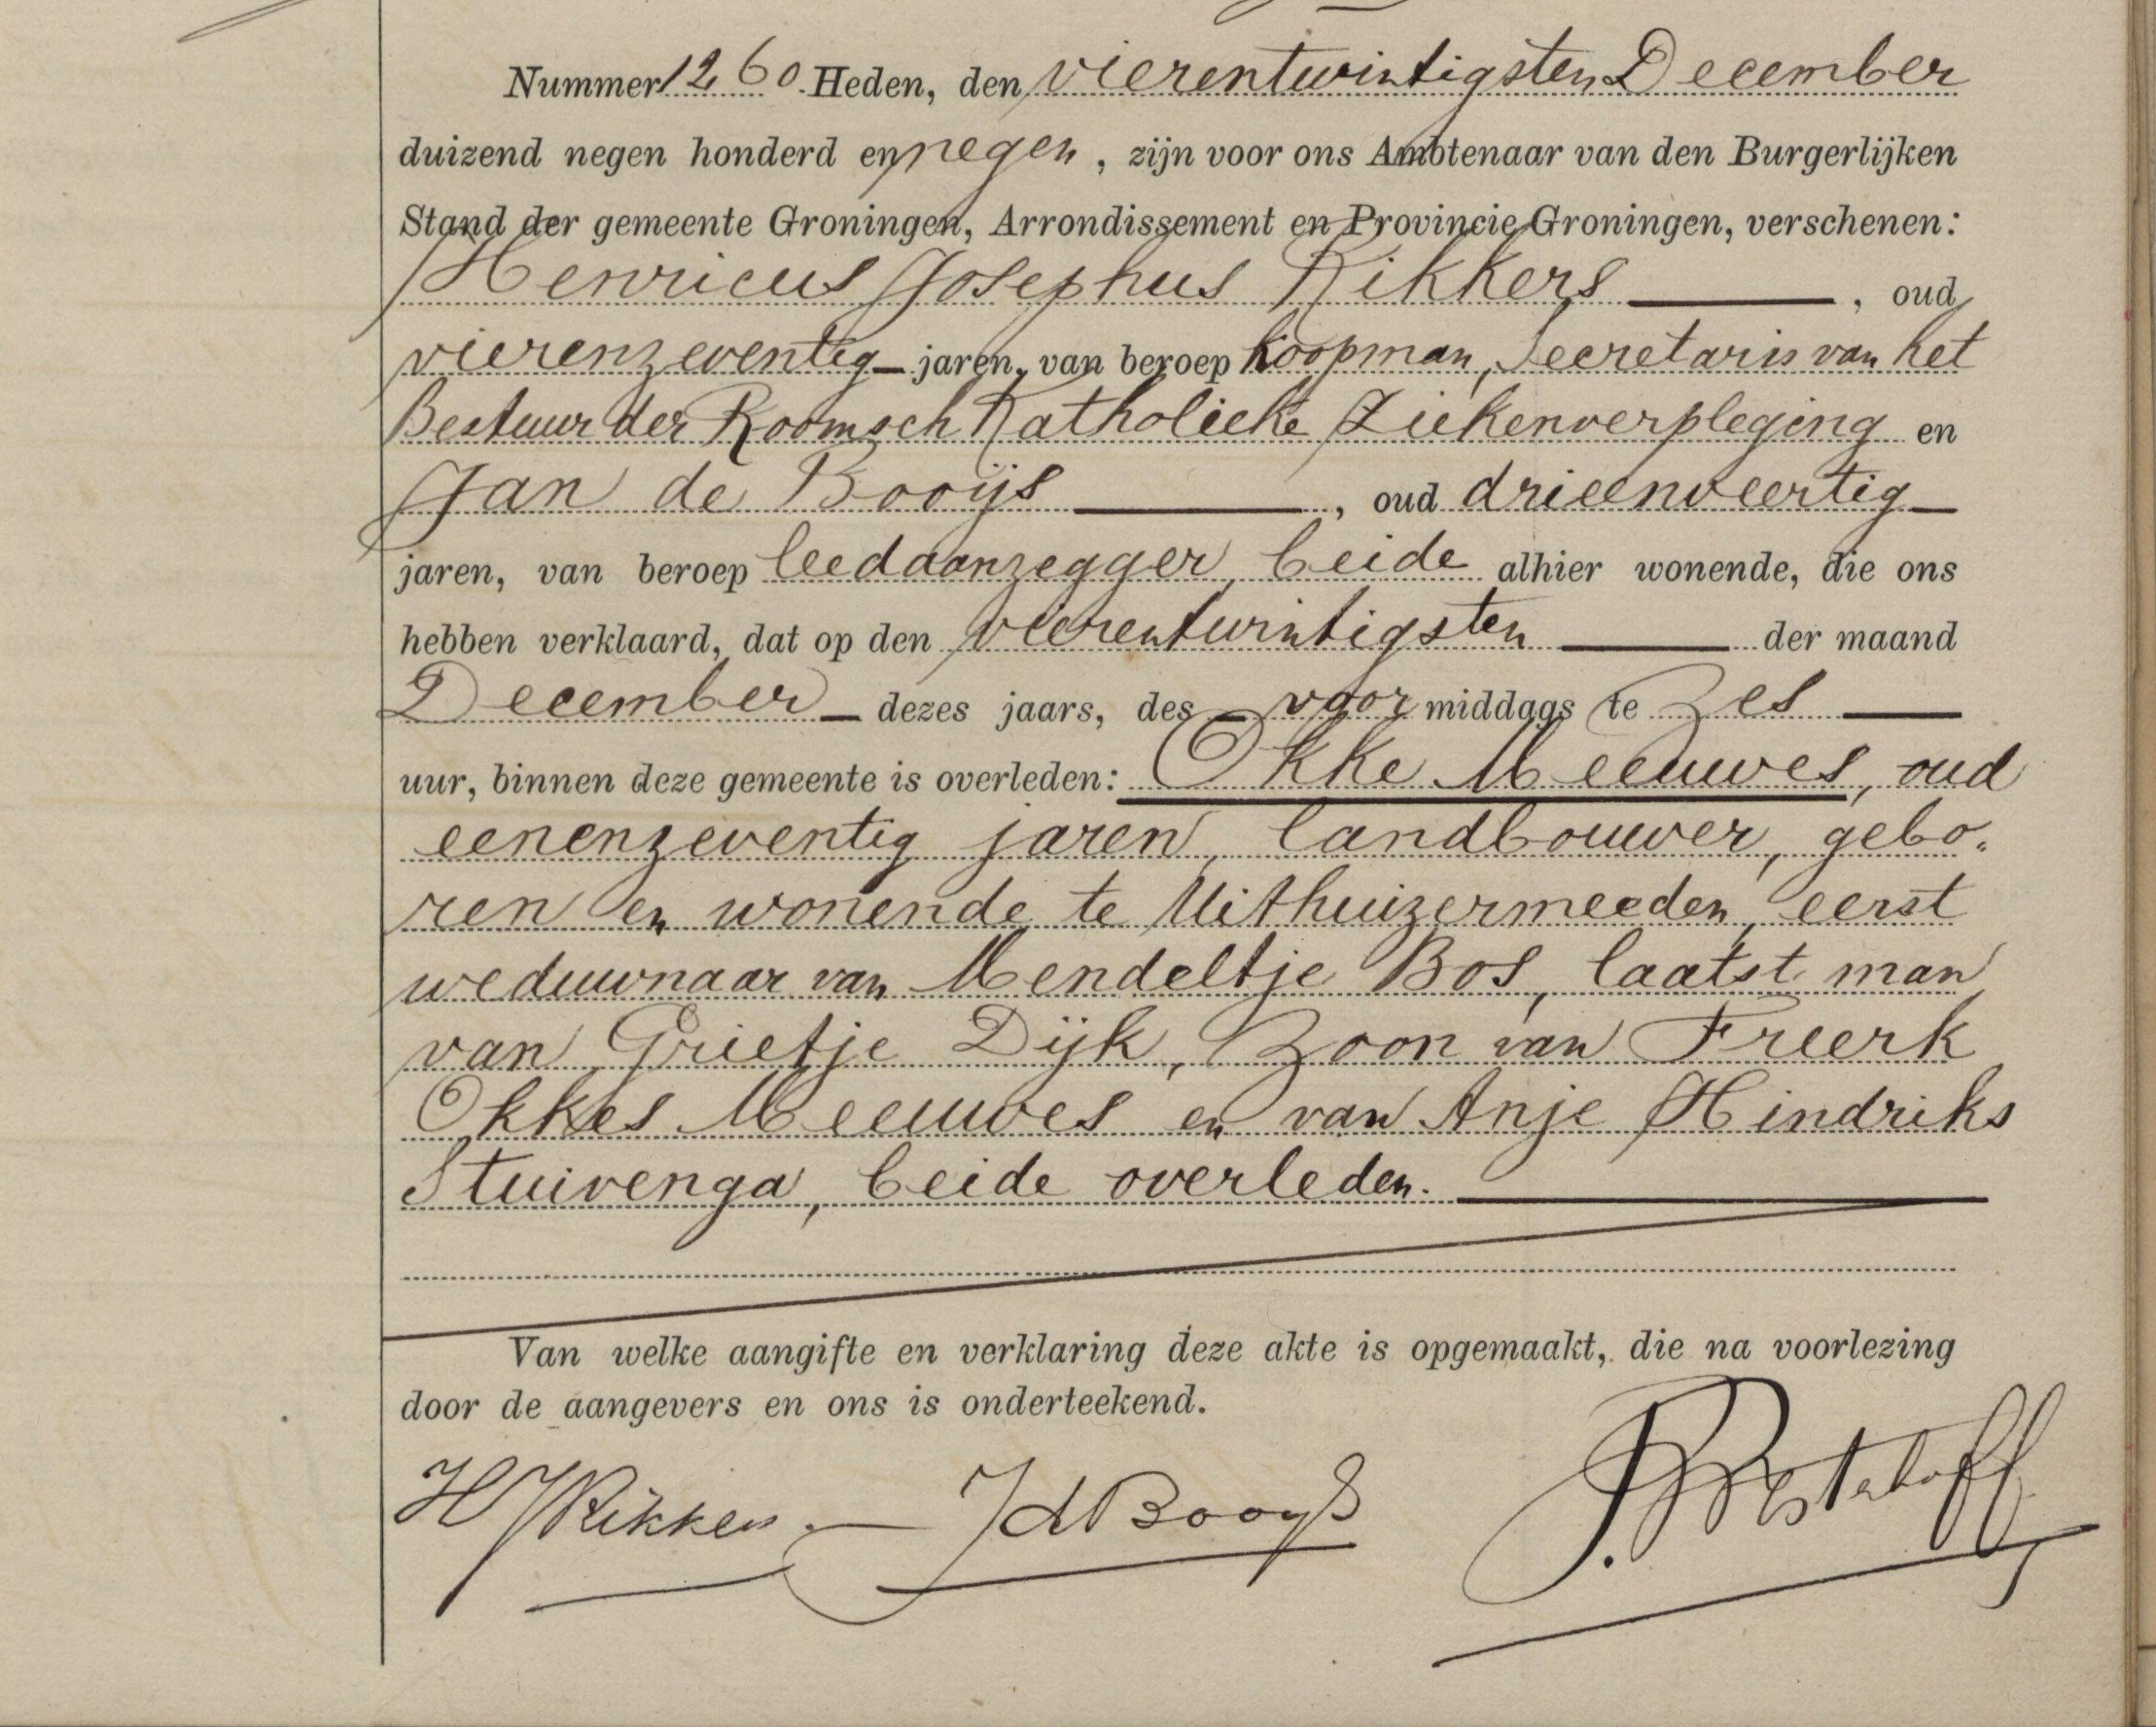 Nummer 1260. Heden, den vierentwintigsten December
duizend negen honderd en negen, zijn voor ons Ambtenaar van den Burgerlijken
Stand der gemeente Groningen, Arrondissement en Provincie Groningen, verschenen:
Henricus Josephus Rikkers, oud
vierenzeventig jaren, van beroep koopman, Secretaris van het
Bestuur der Roomsch Katholieke Ziekenverpleging en
Jan de Booijs, oud drieenveertig
jaren, van beroep leedaanzegger, beide alhier wonende, die ons
hebben verklaard, dat op den vierentwintigsten der maand
December dezes jaars, des voormiddags te zes
uur, binnen deze gemeente is overleden: Okke Meeuwes, oud
eenenzeventig jaren, landbouwer, gebo=
ren en wonende te Uithuizermeeden, eerst
weduwnaar van Mendeltje Bos, laatst man
van Grietje Dijk, Zoon van Freerk
Okkes Meeuwes en van Anje Hindriks
Stuivenga, beide overleden.
Van welke aangifte en verklaring deze akte is opgemaakt, die na voorlezing
door de aangevers en ons is onderteekend.
HJRikkers. JdBooijs